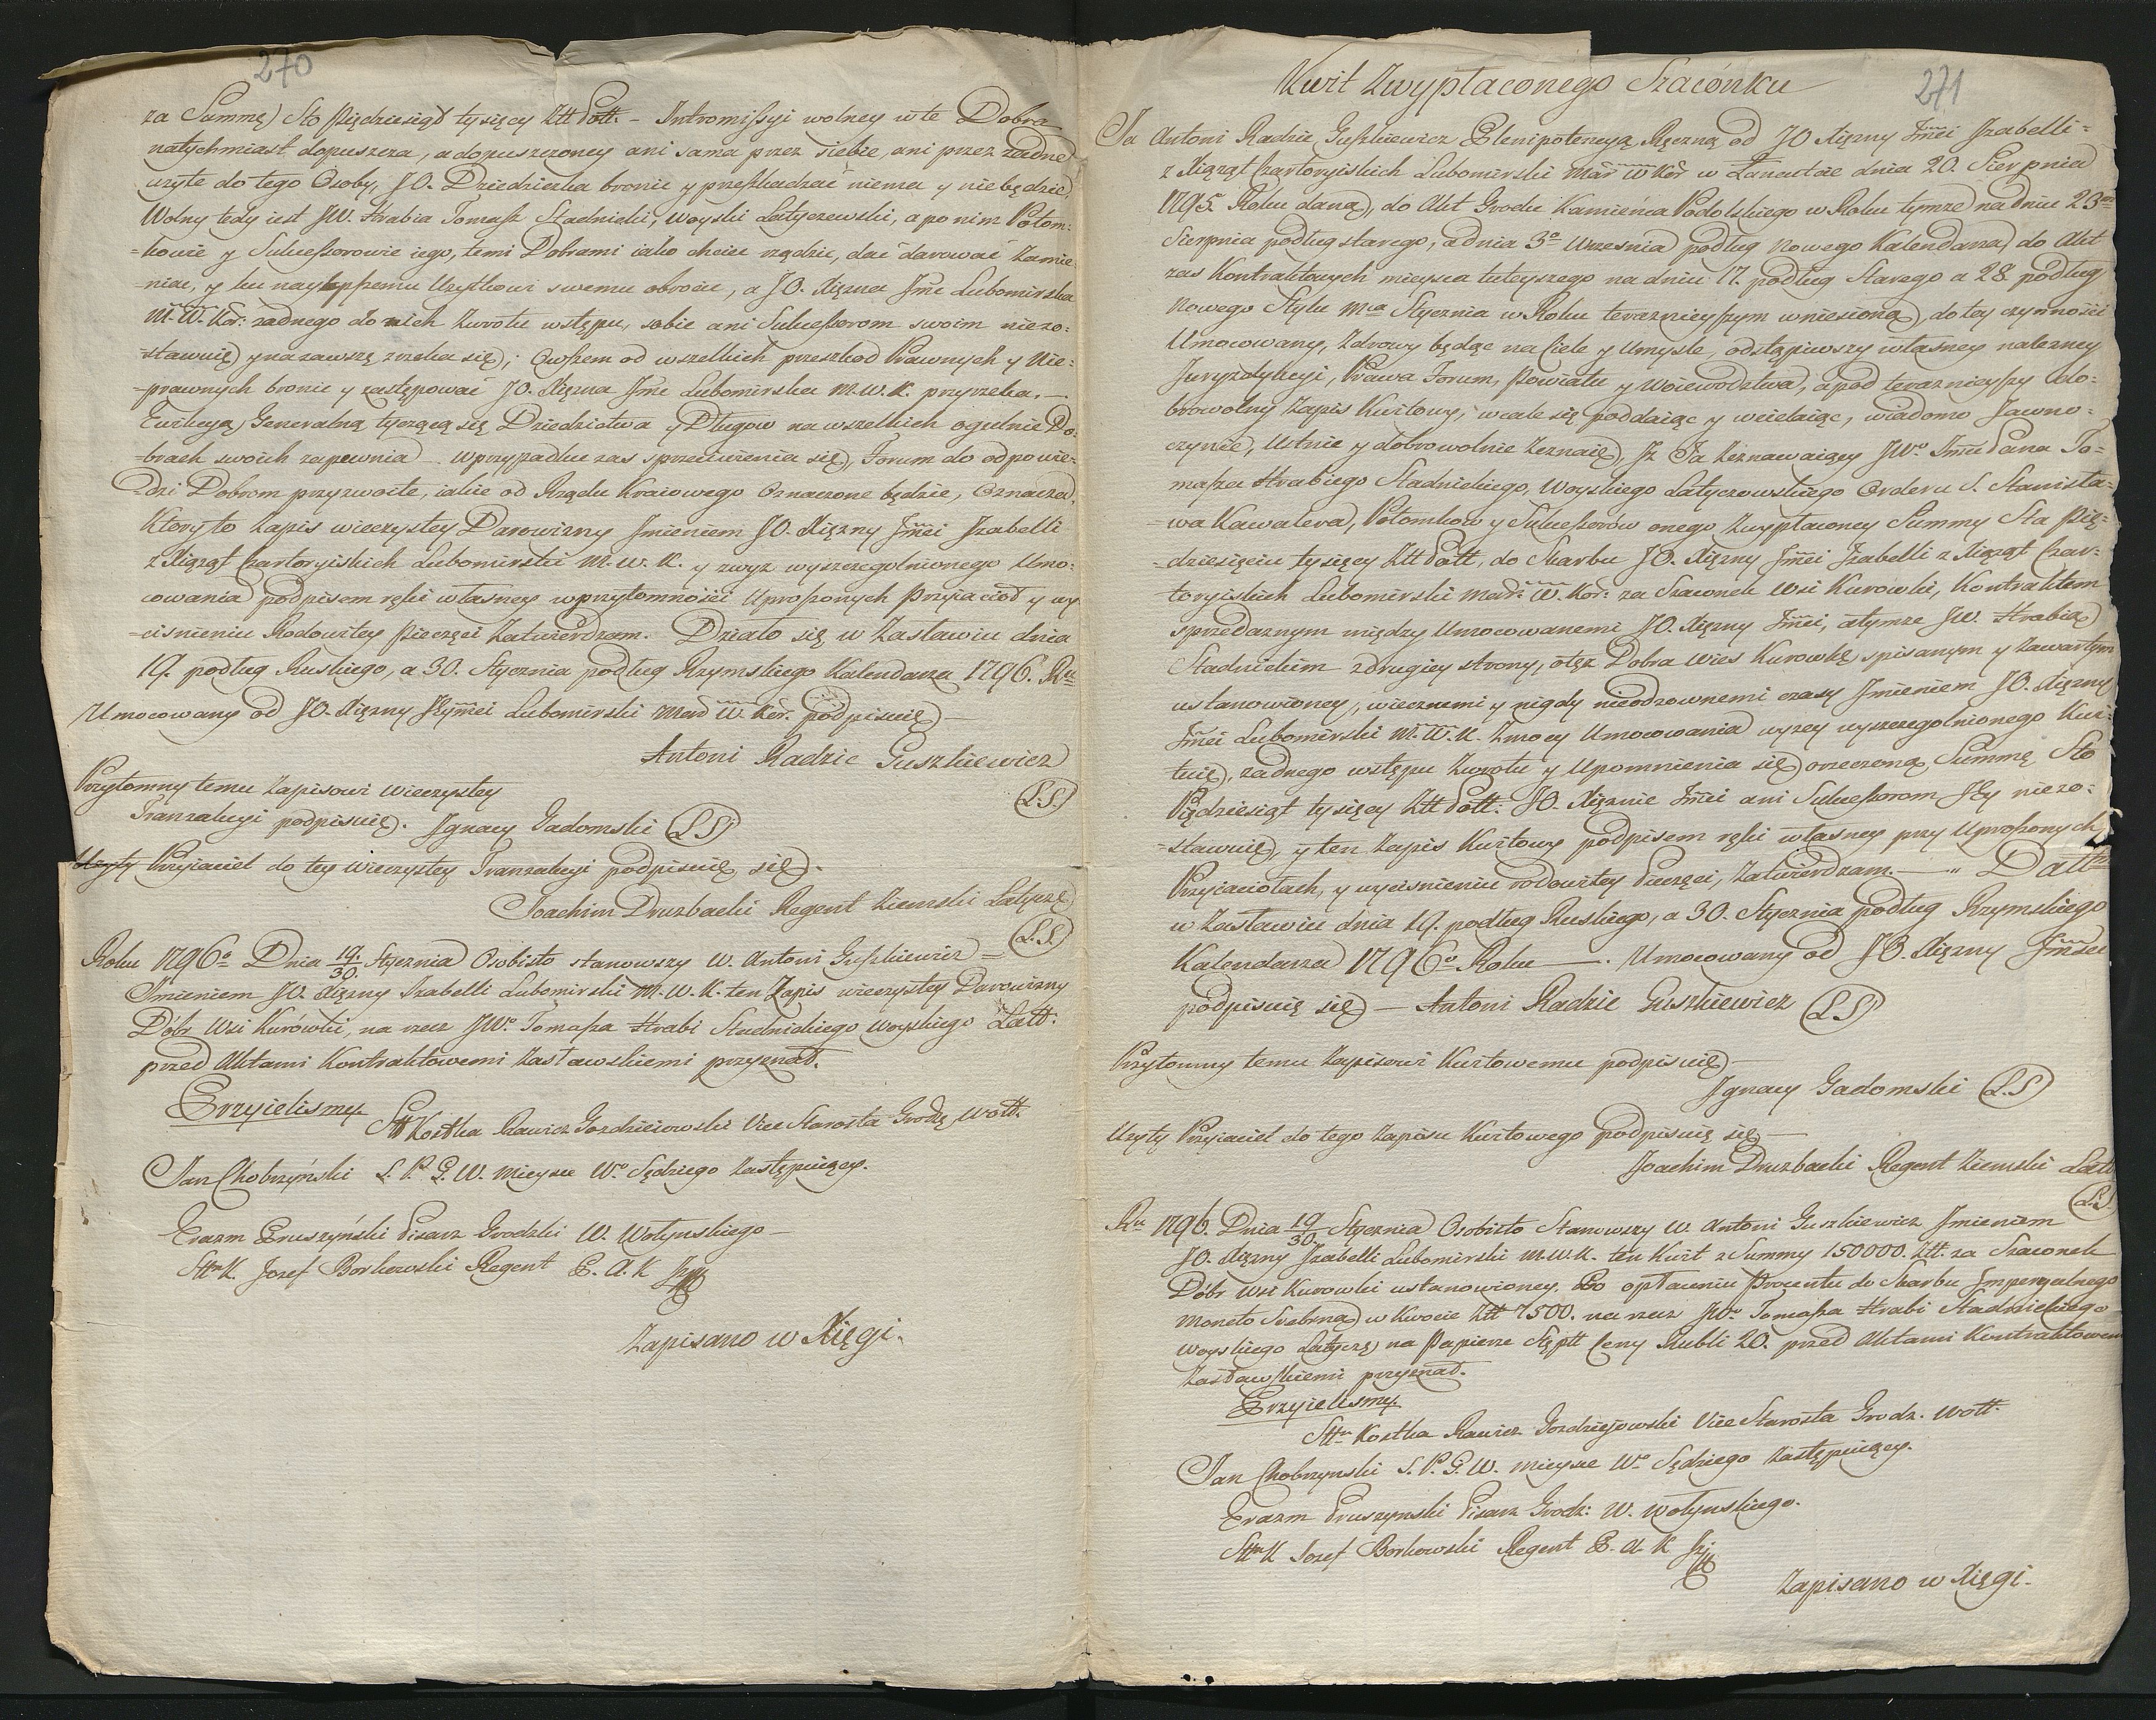 270
za Summę Sto Piędziesiąt tysięcy Złł Poll. - Intromissyi wolney w te Dobra
natychmiast dopuszcza, a dopuszczoney ani sama przez siebie, ani przez żadne
użyte do tego Osoby, JO. Dziedziczka bronic y przeszkadzać niema y nie będzie,
Wolny tedy iest JW. Hrabia Tomasz Stadnicki, Woyski Latyczewski, a po nim Potom:
=kowie y Sukcessorowie iego, temi Dobrami iako chcieć rządzić, dać darować zamie=
=niac, y ku naylepszemu Użytkowi swemu obrocić, a JO. Xięzna Jmć Lubomirska
M. W. Kor: zadnego do nich zwrotu wstępu, sobie ani Sukcessorom swoim niezo:
=stawuię y na zawszę zrzeka się; Owszem od wszelkich przeszkod Prawnych y Nie=
=prawnych bronic y zastępować JO. Xięzna Jmć Lubomirska M. W. K. przyrzeka. —
Ewikcyą Generalną tyczącą się Dziedzictwa y Długow na wszelkich ogulnie Do:
=brach swoich zapewnia — w przypadku zas sprzeciwienia się, Forum do odpowie=
=dzi Dobrom przyzwoite, iakie od Rządu Kraiowego Oznaczone będzie, Oznacza,
Ktory to Zapis wieczystey Darowizny Jmieniem JO. Xięzny Jmci Jzabelli
z Xiążąt Czartoryiskich Lubomirski M. W. K. y zwyz wyszczegolnionego Umo:
cowania podpisem ręki własney w przytomności Uproszonych Przyiacioł y wy
=cisnieniu Rodowitey Pieczęci Zatwierdzam. Działo się w Zasławiu dnia
19. podług Ruskiego, a 30. Stycznia podług Rzymskiego Kalendarza 1796. Ru
Umocowany od JO. Xięzny Jeymci Lubomirski Mar W. Kor. podpisuię —
Antoni Radzic Guszkiewicz
(L.S.)
Przytomny temu Zapisowi Wieczystey
Tranzakcyi podpisuię. Jgnacy Gadomski (L.S)
Uzyty Przyiaciel do tey Wieczystey Tranzakcyi podpisuię się.
Joachim Druzbacki Regent Ziemski Latyczę
(L.S.)
Roku 1796o Dnia 19/30. Stycznia Osobisto stanowszy W. Antoni Guszkiewicz =
Jmieniem JO. Xięzny Jzabelli Lubomirski M. W. K. ten Zapis wieczystey Darowizny
Dóbr Wsi Kurówki, na rzecz JWo. Tomasza Hrabi Stadnickiego Woyskiego Latt:
przed Aktami Kontraktowemi Zasławskiemi przyznał.
Przyielismy.
Stt Kostka Rawicz Gozdziejowski Vice Starosta Grodz. Woł.
Jan Chobrzyński S. P. G. W. mieysce Wo Sędziego Zastępuiący.
Erazm Pruszyński Pisarz Grodzki W. Wołynskiego —
Sttn K. Jozef Borkowski Regent P. A. K
Zapisano w Xięgi.
271
Kwit Zwypłaconego Szacónku
Ja Antoni Radzic Guszkiewicz Plenipotencyą Ręczną od JO Xięzny Jmci Jzabelli=
z Xiążąt Czartoryiskich Lubomirski Mar W Kor w Łancutcie dnia 20. Sierpnia
1795. Roku daną, do Akt Grodu Kamieńca Podolskiego w Roku tymze na dniu 23o
Sierpnia podług starego, a dnia 3o Wrzesnia podług Nowego Kalendarza do Akt
zas Kontraktowych mieysca tuteyszego na dniu 17. podług Starego a 28. podług
Nowego Stylu Mca Stycznia w Roku terazniejszym wniesioną, do tey czynności
Umocowany, Zdrowy będąc na Ciele y Umysle, odstąpiwszy własney nalezney
Juryzdykcyi, Prawa Forum, Powiatu y Woiewodztwa, a pod terazniejszy do=
browolny Zapis Kwitowy, wcale się poddaiąc y wcielaiąc, wiadomo Jawno=
czynię, Ustnie y dobrowolnie Zeznaię, Jz Ja Zeznawaiący JWo. Jmci Pana To=
masza Hrabiego Stadnickiego, Woyskiego Latyczowskiego Orderu S. Stanisła=
=wa Kawalera, Potomkow y Sukcessorów onego Zwypłaconey Summy Sta Pię=
=dziesięciu tysięcy Złł Poll, do Skarbu JO. Xięzny Jmci Jzabelli z Xiążąt Czar=
=toryiskich Lubomirski Mar: W. Kor: za Szacunek Wsi Kurowki, Kontraktem
sprzedaznym między Umocowanemi JO. Xięzny Jmci, a tymze JW. Hrabią
Stadnickim z drugiey strony, o też Dobra Wies Kurowkę spisanym y Zawartym
ustanowioney, wiecznemi y nigdy nieodzownemi czasy Jmieniem JO. Xięzny
Jmci Lubomirski M. W. K. Zmocy Umocowania wyzey wyszczegolnionego Kwi=
tuię, zadnego wstępu Zwrotu y Upomnienia się orzeczoną Summę Sto
Piędziesiąt tysięcy Złł Poll: JO. Xięznie Jmci ani Sukcessorom Jey niezo=
=stawuię, y ten Zapis Kwitowy podpisem ręki własney przy Uproszonych
Przyiaciołach, y wycisnieniu rodowitey Pieczęci, Zatwierdzam. — „ Datt
w Zasławiu dnia 19. podług Ruskiego, a 30. Stycznia podług Rzymskiego
Kalendarza 1796o Roku —. Umocowany od JO. Xięzny Jmści
podpisuię się — Antoni Radzic Guszkiewicz (L.S)
Przytomny temu Zapisowi Kwitowemu podpisuię —
Jgnacy Gadomski (L.S)
Uzyty Przyiaciel do tego Zapisu Kwitowego podpisuię się —
Joachim Druzbacki Regent Ziemski Lat
(L.S.)
Ru 1796. Dnia 19/30. Stycznia Osobisto Stanowszy W. Antoni Guszkiewicz Jmieniem
JO. Xięzny Jzabelli Lubomirski M. W. K. ten Kwit z Summy 150000. Złł. za Szacunek
Dóbr Wsi Kurowki ustanowioney. Po opłaceniu Procentu do Skarbu Jmperyalnego
Moneto Srebrną w Kwocie Złł 7500. na rzecz JWo. Tomasza Hrabi Stadnickiego
Woyskiego Latyczę, na Papierze Stępll Ceny Rubli 20. przed Aktami Kontraktowem
Zasławskiemi przyznał.
Przyielismy.
Sttn Kostka Rawicz Gozdziejowski Vice Starosta Grodz. Woł.
Jan Chobrzynski S. P. G. W. mieysce Wo Sędziego Zastępuiący.
Erazm Pruszynski Pisarz Grodz: W. Wołynskiego.
Sttn K Jozef Borkowski Regent P. A. K
Zapisano w Xięgi.